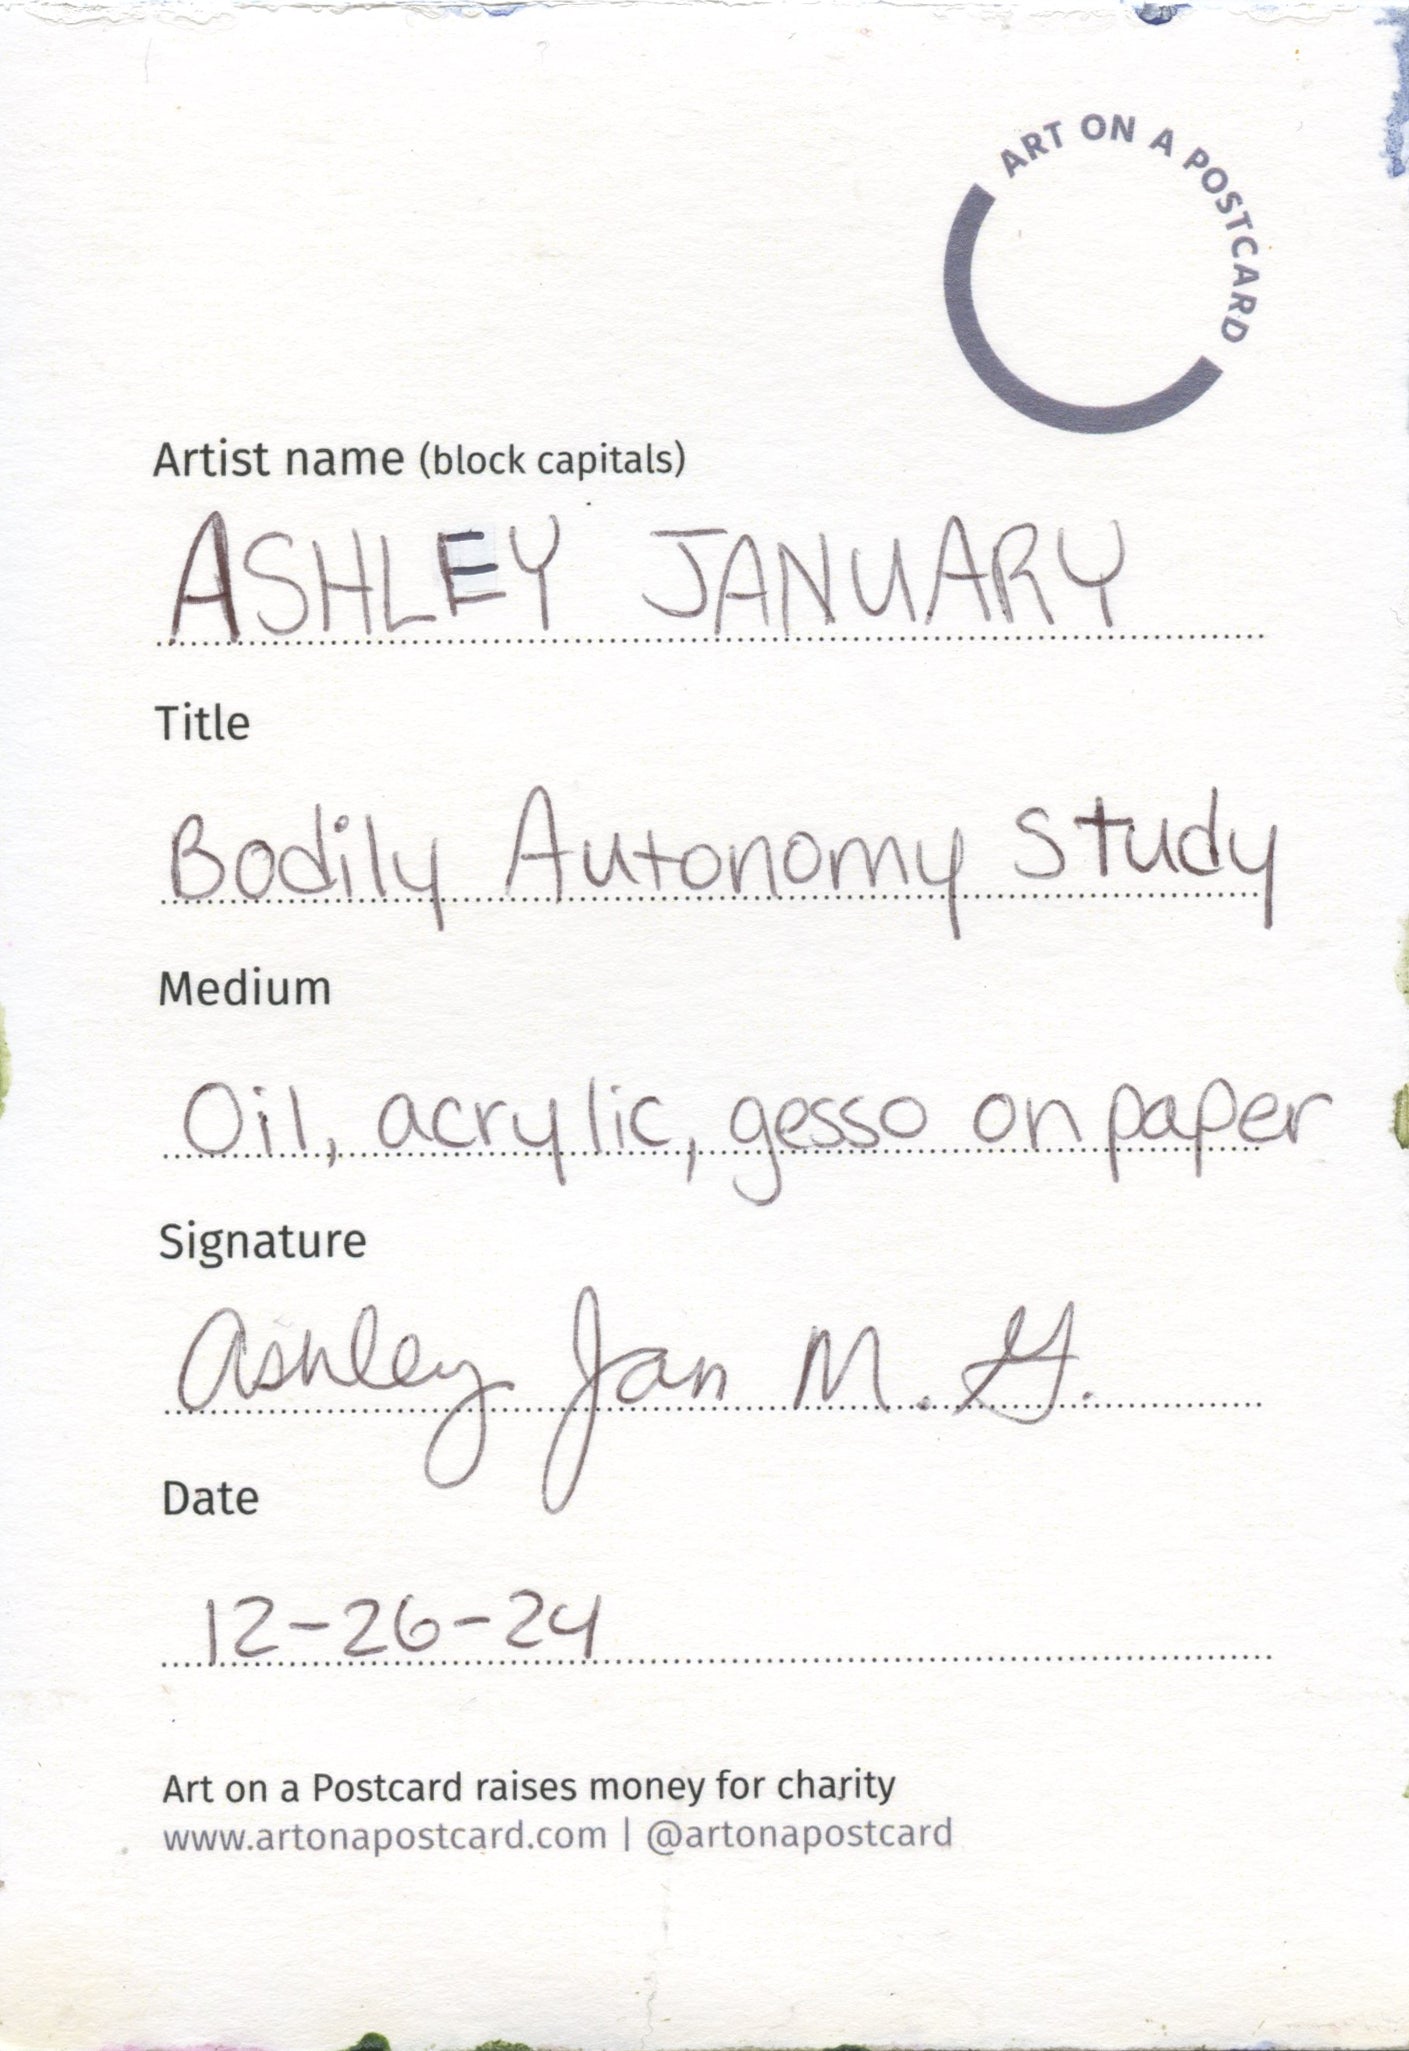 ART ON A POSTCARD
Artist name (block capitals)
ASHLEY JANUARY
Title
Bodily Autonomy Study
Medium
Oil, acrylic, gesso on paper
Signature
Ashley Jan M. G.
Date
12-26-24
Art on a Postcard raises money for charity
www.artonapostcard.com | @artonapostcard